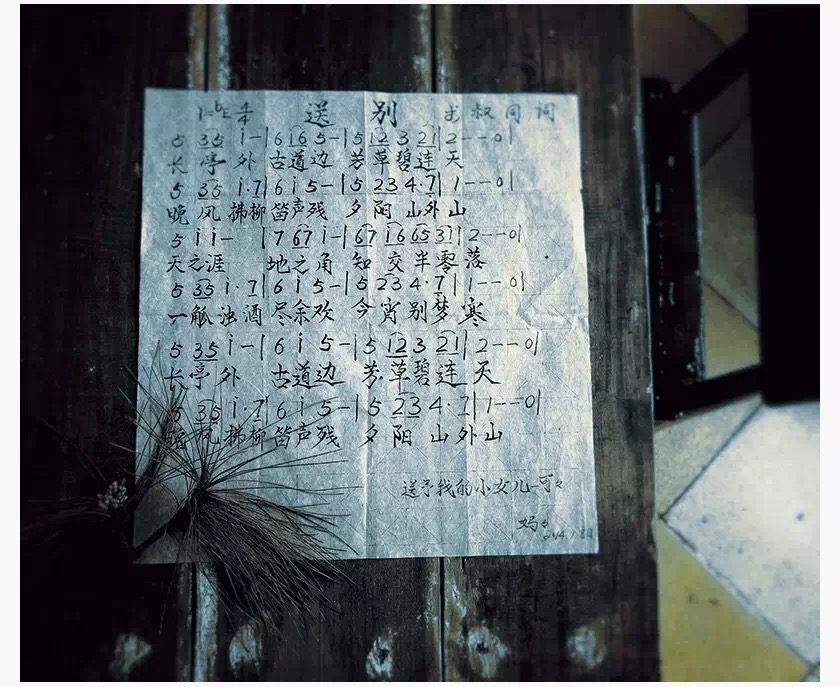 1=ᵇE 4/4 送 别 叔同词
5 35 i-|6 i6 5-|5 12 3 21|2--0|
长亭外 古道边 芳草碧连天
5 35 i·7|6 i 5-|5 23 4·7|1--0|
晚风拂柳笛声残 夕阳山外山
5 i i-|7 67 i-|67 i6 65 31|2--0|
天之涯 地之角 知交半零落
5 35 i·7|6 i 5-|5 23 4·7|1--0|
一觚浊酒尽余欢 今宵别梦寒
5 35 i-|6 i 5-|5 12 3 21|2--0|
长亭外 古道边 芳草碧连天
5 35 i·7|6 i 5-|5 23 4·7|1--0|
晚风拂柳笛声残 夕阳山外山
送予我的小女儿-可々
妈々